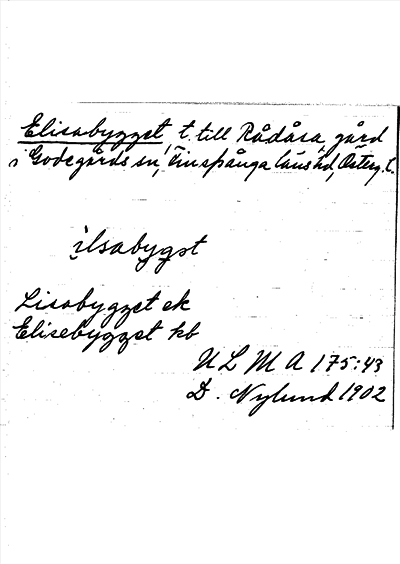 Elisabygget t. till Rådåsa gård
i Godegårds sn, Finspånga läns hd, Österg. l.
ilsabygst
Lisabygget ek
Elisebygget kb
ULMA 175:43
D. Nylund 1902